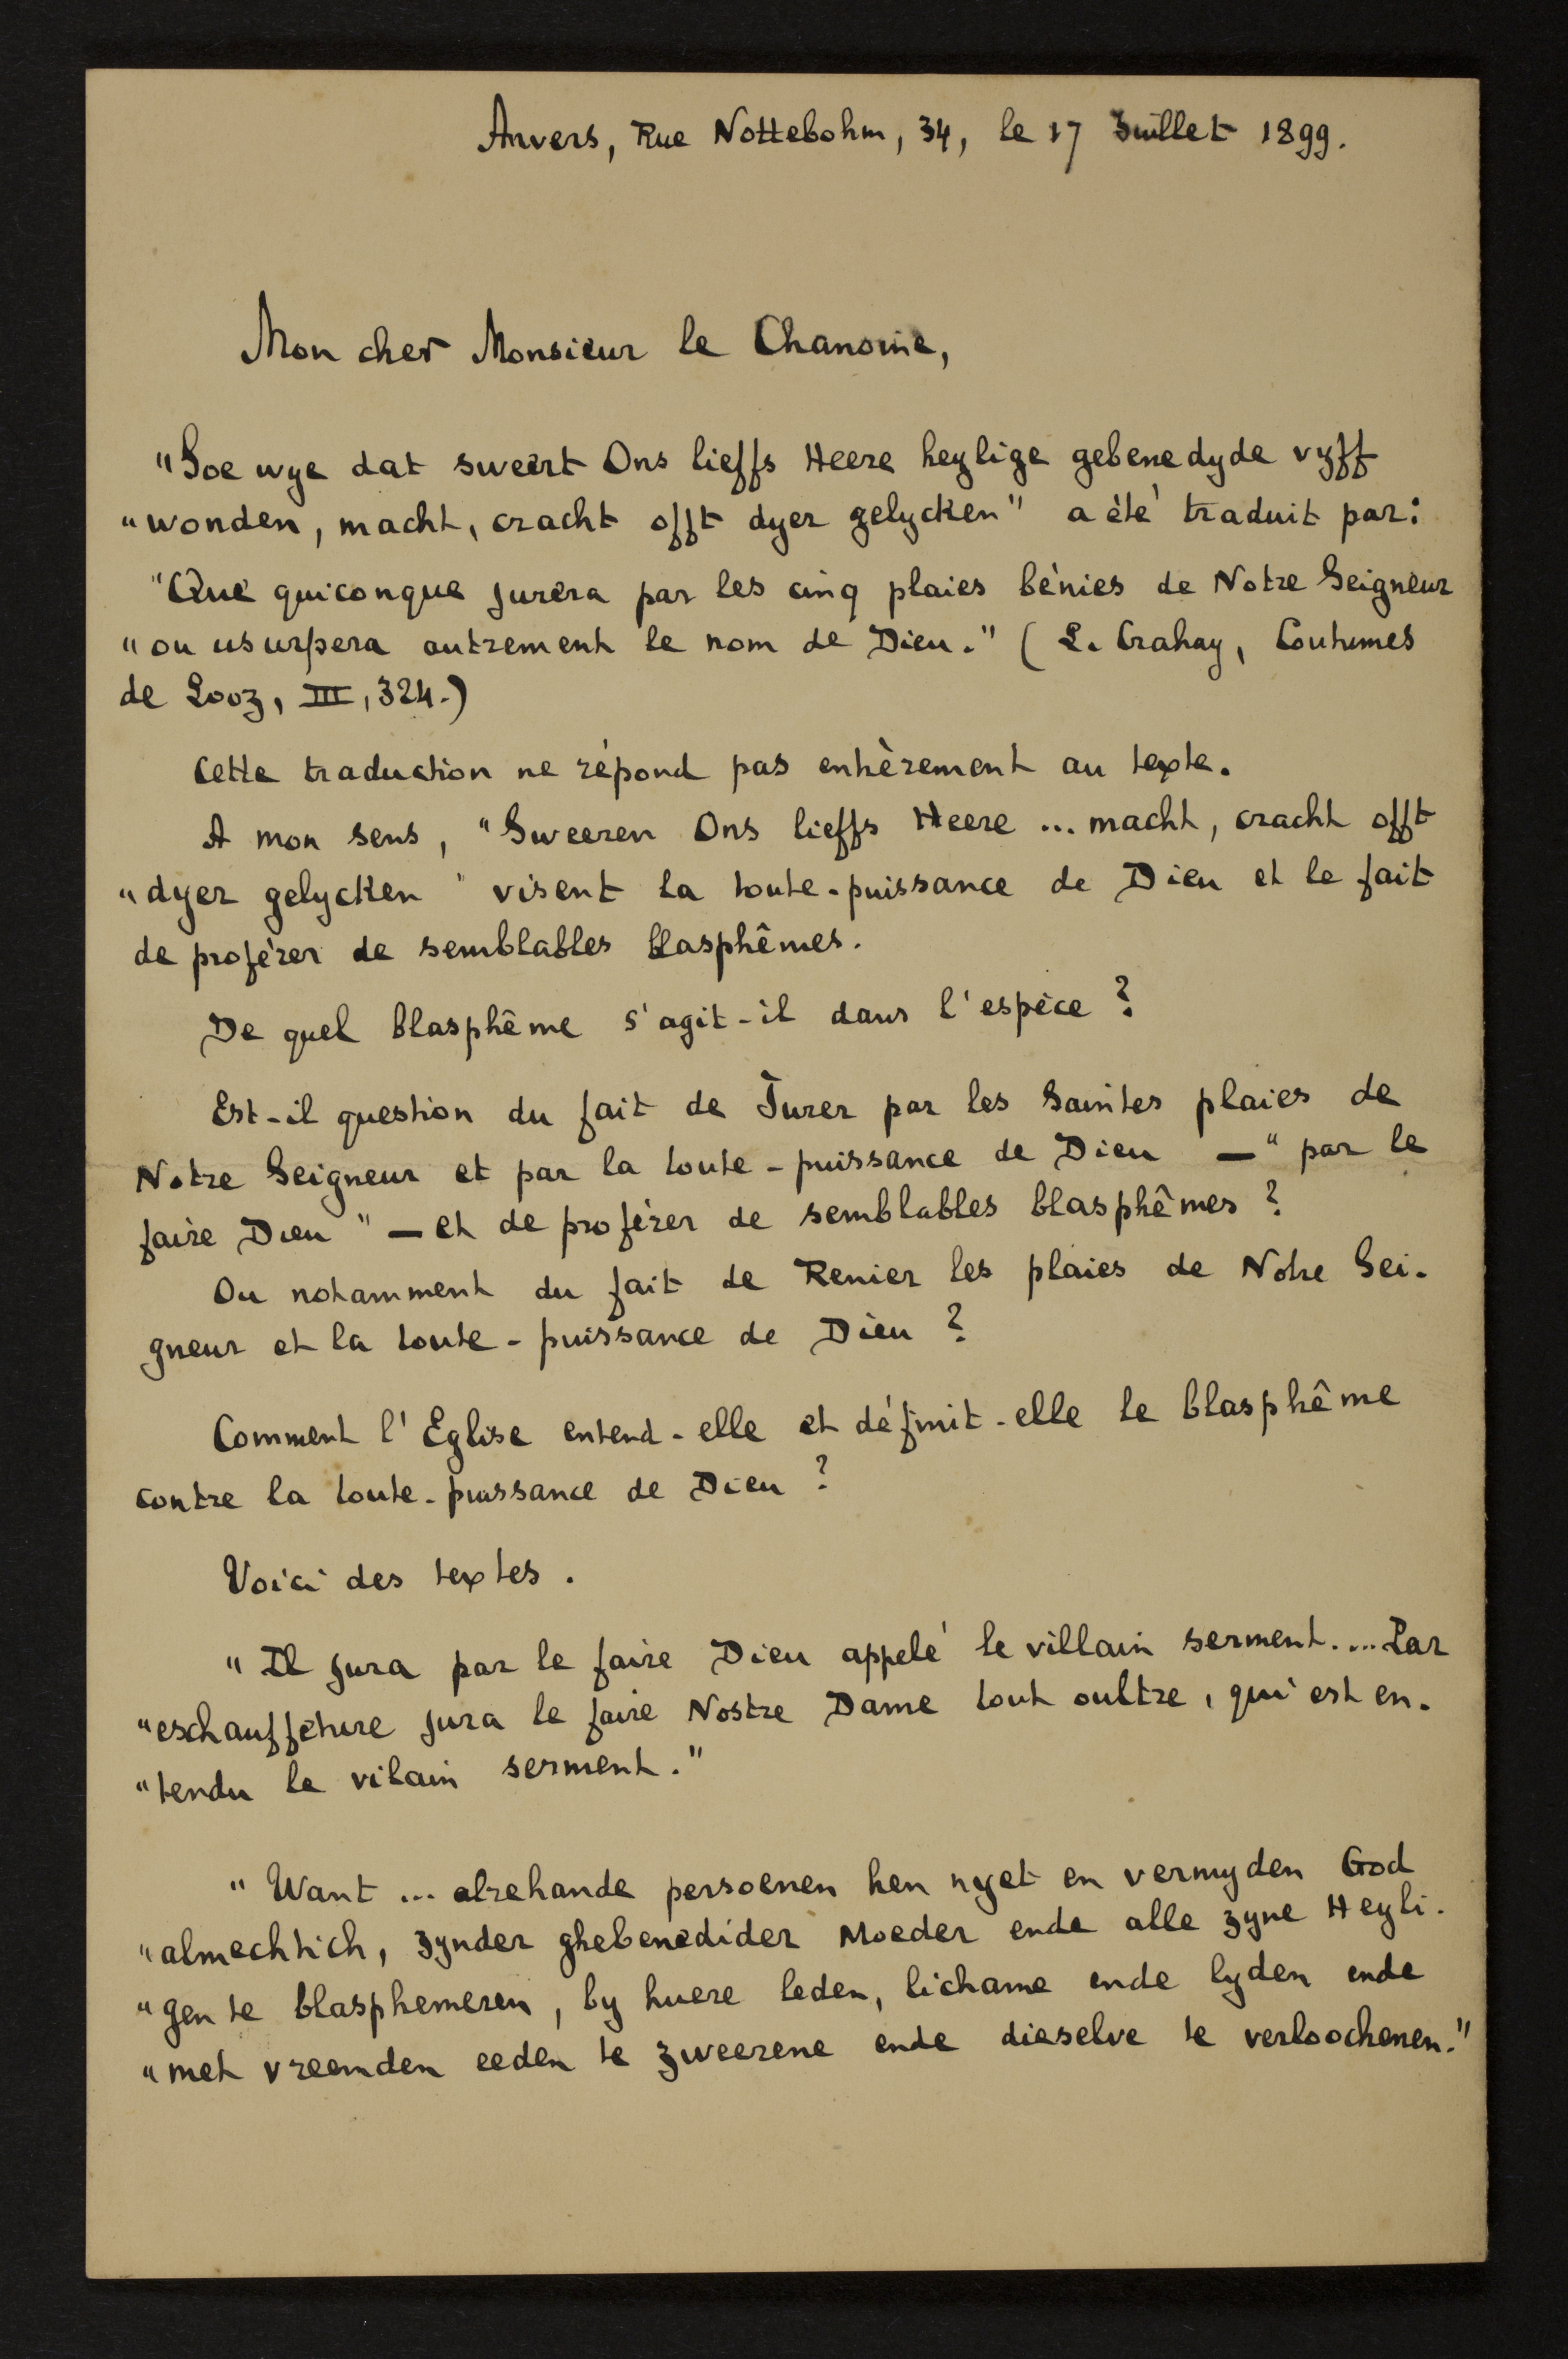 Anvers, Rue Nottebohm, 34, le 17 Juillet 1899.
Mon cher Monsieur le Chanoine,
"Soe wye dat sweert Ons lieffs Heere heylige gebenedyde vyff
"wonden, macht, cracht offt dyer gelycken" a été traduit par:
"Que quiconque jurera par les cinq plaies bénies de Notre Seigneur
"ou usurpera autrement le nom de Dieu." (L. Crahay, Coutumes
de Looz, III, 324.)
Cette traduction ne répond pas entièrement au texte.
A mon sens, "Sweeren Ons lieffs Heere ... macht, cracht offt
"dyer gelycken" visent la toute-puissance de Dieu et le fait
de proférer de semblables blasphêmes.
De quel blasphême s'agit-il dans l'espèce ?
Est-il question du fait de Jurer par les Saintes plaies de
Notre Seigneur et par la toute-puissance de Dieu — "par le
faire Dieu" — et de proférer de semblables blasphêmes ?
Ou notamment du fait de Renier les plaies de Notre Sei-
gneur et la toute-puissance de Dieu ?
Comment l'Eglise entend-elle et définit-elle le blasphême
contre la toute-puissance de Dieu ?
Voici des textes.
"Il jura par le faire Dieu appelé le villain serment.... Par
"eschauffeture jura le faire Nostre Dame tout oultre, qui est en-
"tendu le vilain serment."
"Want ... alrehande persoenen hen nyet en vermyden God
"almechtich, zynder ghebenedider Moeder ende alle zyne Heyli-
"gen te blasphemeren, by huere leden, lichame ende lyden ende
"met vreemden eeden te zweerene ende dieselve te verloochenen."